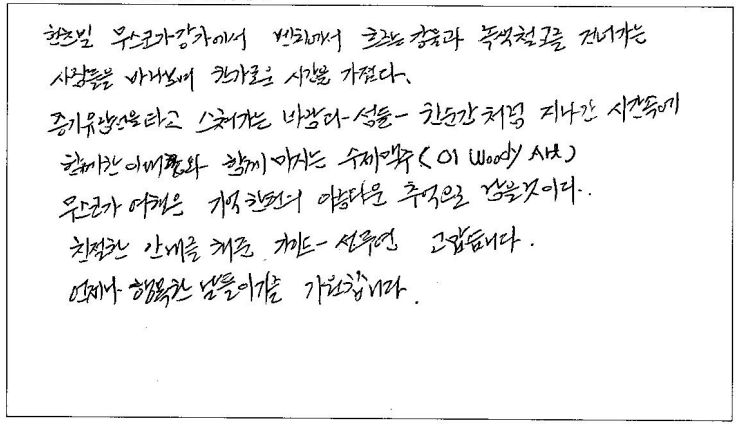 헌츠빌 무스코카강가에서 벤치에서 흐르는 강물과 녹색철교를 건너가는
사람들을 바라보며 한가로운 시간을 가졌다.
증기유람선을 타고 스쳐가는 바람과 섬들 - 한순간처럼 지나간 시간속에
함께한 이들과 함께 마시는 수제맥주 (Ol Woody Ark)
무스코카 여행은 기억 한편의 아름다운 추억으로 남을것이다..
친절한 안내를 해준 가이드 - 고맙습니다.
언제나 행복한 날들이기를 기원합니다.